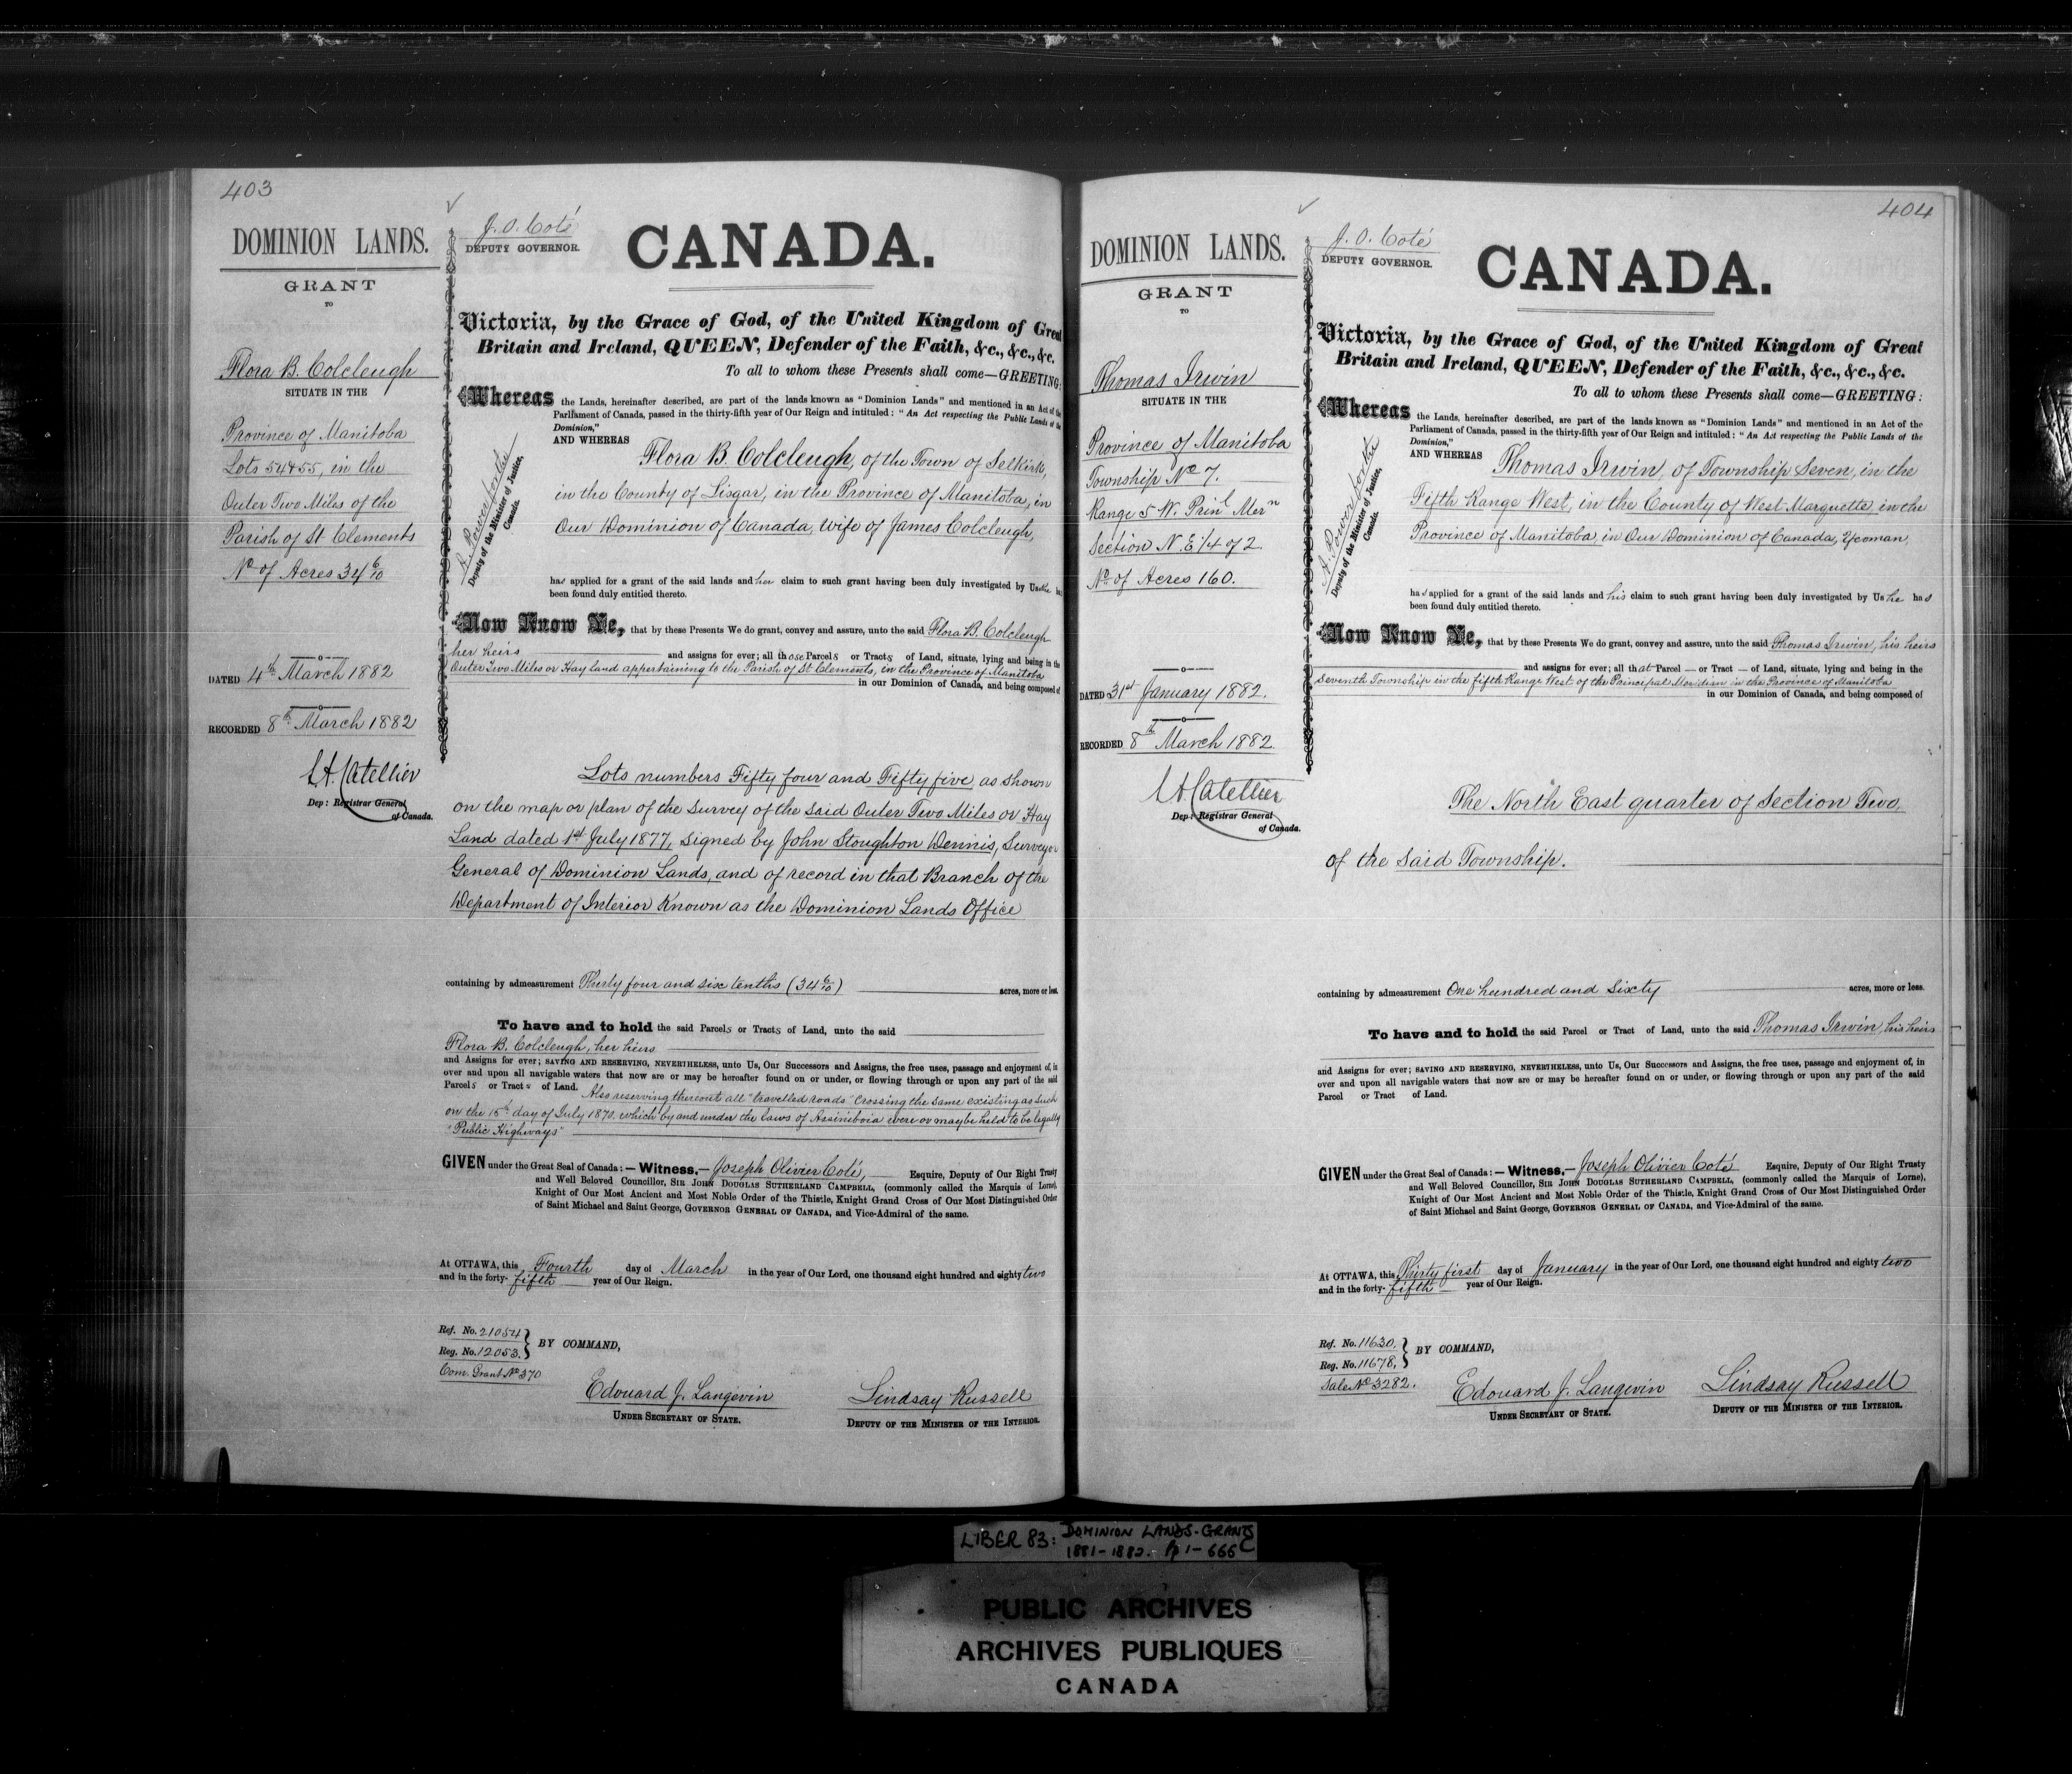 403
DOMINION LANDS.
GRANT
TO
Flora B. Colcleugh
SITUATE IN THE
Province of Manitoba
Lots 54 & 55, in the
Outer Two Miles of the
Parish of St Clements
No of Acres 34 6/10
DATED 4th March 1882
RECORDED 8th March 1882
L.A. Catellier
Dep: Registrar General
of Canada.
J. O. Coté
DEPUTY GOVERNOR.
CANADA.
Victoria, by the Grace of God, of the United Kingdom of Great
Britain and Ireland, QUEEN, Defender of the Faith, &c., &c., &c.
To all to whom these Presents shall come—GREETING:
Whereas the Lands, hereinafter described, are part of the lands known as "Dominion Lands" and mentioned in an Act of the
Parliament of Canada, passed in the thirty-fifth year of Our Reign and intituled: "An Act respecting the Public Lands of the
Dominion,"
AND WHEREAS Flora B. Colcleugh, of the Town of Selkirk,
in the County of Lisgar, in the Province of Manitoba, in
Our Dominion of Canada, Wife of James Colcleugh,
A. Power
Deputy of the Minister of Justice,
Canada.
has applied for a grant of the said lands and her claim to such grant having been duly investigated by Us she has
been found duly entitled thereto.
Now Know Ye, that by these Presents We do grant, convey and assure, unto the said Flora B. Colcleugh
her heirs and assigns for ever; all those Parcels or Tracts of Land, situate, lying and being in the
Outer Two Miles or Hay Land appertaining to the Parish of St Clements, in the Province of Manitoba
in our Dominion of Canada, and being composed of
Lots numbers Fifty four and Fifty five, as shown
on the map or plan of the survey of the said Outer Two Miles or Hay
Land dated 1st July 1877, signed by John Stoughton Dennis, Surveyor
General of Dominion Lands, and of record in that Branch of the
Department of Interior Known as the Dominion Lands Office
containing by admeasurement Thirty four and six tenths (34 6/10) acres, more or less.
To have and to hold the said Parcels or Tracts of Land, unto the said
Flora B. Colcleugh, her heirs
and Assigns for ever; SAVING AND RESERVING, NEVERTHELESS, unto Us, Our Successors and Assigns, the free uses, passage and enjoyment of, in
over and upon all navigable waters that now are or may be hereafter found on or under, or flowing through or upon any part of the said
Parcels or Tracts of Land. Also reserving thereout all "travelled roads" crossing the same existing as such
on the 15th day of July 1870, which by and under the laws of Assiniboia were or may be held to be legally
"Public Highways"
GIVEN under the Great Seal of Canada:—Witness,—Joseph Olivier Coté, Esquire, Deputy of Our Right Trusty
and Well Beloved Councillor, SIR JOHN DOUGLAS SUTHERLAND CAMPBELL, (commonly called the Marquis of Lorne),
Knight of Our Most Ancient and Most Noble Order of the Thistle, Knight Grand Cross of Our Most Distinguished Order
of Saint Michael and Saint George, GOVERNOR GENERAL OF CANADA, and Vice-Admiral of the same.
At OTTAWA, this Fourth day of March in the year of Our Lord, one thousand eight hundred and eighty two
and in the forty-fifth year of Our Reign.
Ref. No. 21054
Reg. No. 12053.
Com. Grant No 370
BY COMMAND,
Edouard J. Langevin
UNDER SECRETARY OF STATE.
Lindsay Russell
DEPUTY OF THE MINISTER OF THE INTERIOR.
404
DOMINION LANDS.
GRANT
TO
Thomas Irwin
SITUATE IN THE
Province of Manitoba
Township No 7.
Range 5 W. Prinl Mern
Section N.E 1/4 of 2
No of Acres 160.
DATED 31st January 1882.
RECORDED 8th March 1882.
L.A. Catellier
Dep: Registrar General
of Canada.
J. O. Coté
DEPUTY GOVERNOR.
CANADA.
Victoria, by the Grace of God, of the United Kingdom of Great
Britain and Ireland, QUEEN, Defender of the Faith, &c., &c., &c.
To all to whom these Presents shall come—GREETING:
Whereas the Lands, hereinafter described, are part of the lands known as "Dominion Lands" and mentioned in an Act of the
Parliament of Canada, passed in the thirty-fifth year of Our Reign and intituled: "An Act respecting the Public Lands of the
Dominion,"
AND WHEREAS Thomas Irwin, of Township Seven, in the
Fifth Range West, in the County of West Marquette, in the
Province of Manitoba, in Our Dominion of Canada, Yeoman,
A. Power
Deputy of the Minister of Justice,
Canada.
has applied for a grant of the said lands and his claim to such grant having been duly investigated by Us he has
been found duly entitled thereto.
Now Know Ye, that by these Presents We do grant, convey and assure, unto the said Thomas Irwin, his heirs
and assigns for ever; all that Parcel — or Tract — of Land, situate, lying and being in the
Seventh Township in the fifth Range West of the Principal Meridian in the Province of Manitoba
in our Dominion of Canada, and being composed of
The North East quarter of Section Two,
of the said Township.
containing by admeasurement One hundred and sixty acres, more or less.
To have and to hold the said Parcel or Tract of Land, unto the said Thomas Irwin, his heirs
and Assigns for ever; SAVING AND RESERVING, NEVERTHELESS, unto Us, Our Successors and Assigns, the free uses, passage and enjoyment of, in
over and upon all navigable waters that now are or may be hereafter found on or under, or flowing through or upon any part of the said
Parcel or Tract of Land.
GIVEN under the Great Seal of Canada:—Witness,—Joseph Olivier Coté Esquire, Deputy of Our Right Trusty
and Well Beloved Councillor, SIR JOHN DOUGLAS SUTHERLAND CAMPBELL, (commonly called the Marquis of Lorne),
Knight of Our Most Ancient and Most Noble Order of the Thistle, Knight Grand Cross of Our Most Distinguished Order
of Saint Michael and Saint George, GOVERNOR GENERAL OF CANADA, and Vice-Admiral of the same.
At OTTAWA, this Thirty first day of January in the year of Our Lord, one thousand eight hundred and eighty two
and in the forty-fifth year of Our Reign.
Ref. No. 11630,
Reg. No. 11678,
Sale No 3282.
BY COMMAND,
Edouard J. Langevin
UNDER SECRETARY OF STATE.
Lindsay Russell
DEPUTY OF THE MINISTER OF THE INTERIOR.
LIBER 83: DOMINION LANDS-GRANTS
1881-1882. Pp 1-666C
PUBLIC ARCHIVES
ARCHIVES PUBLIQUES
CANADA